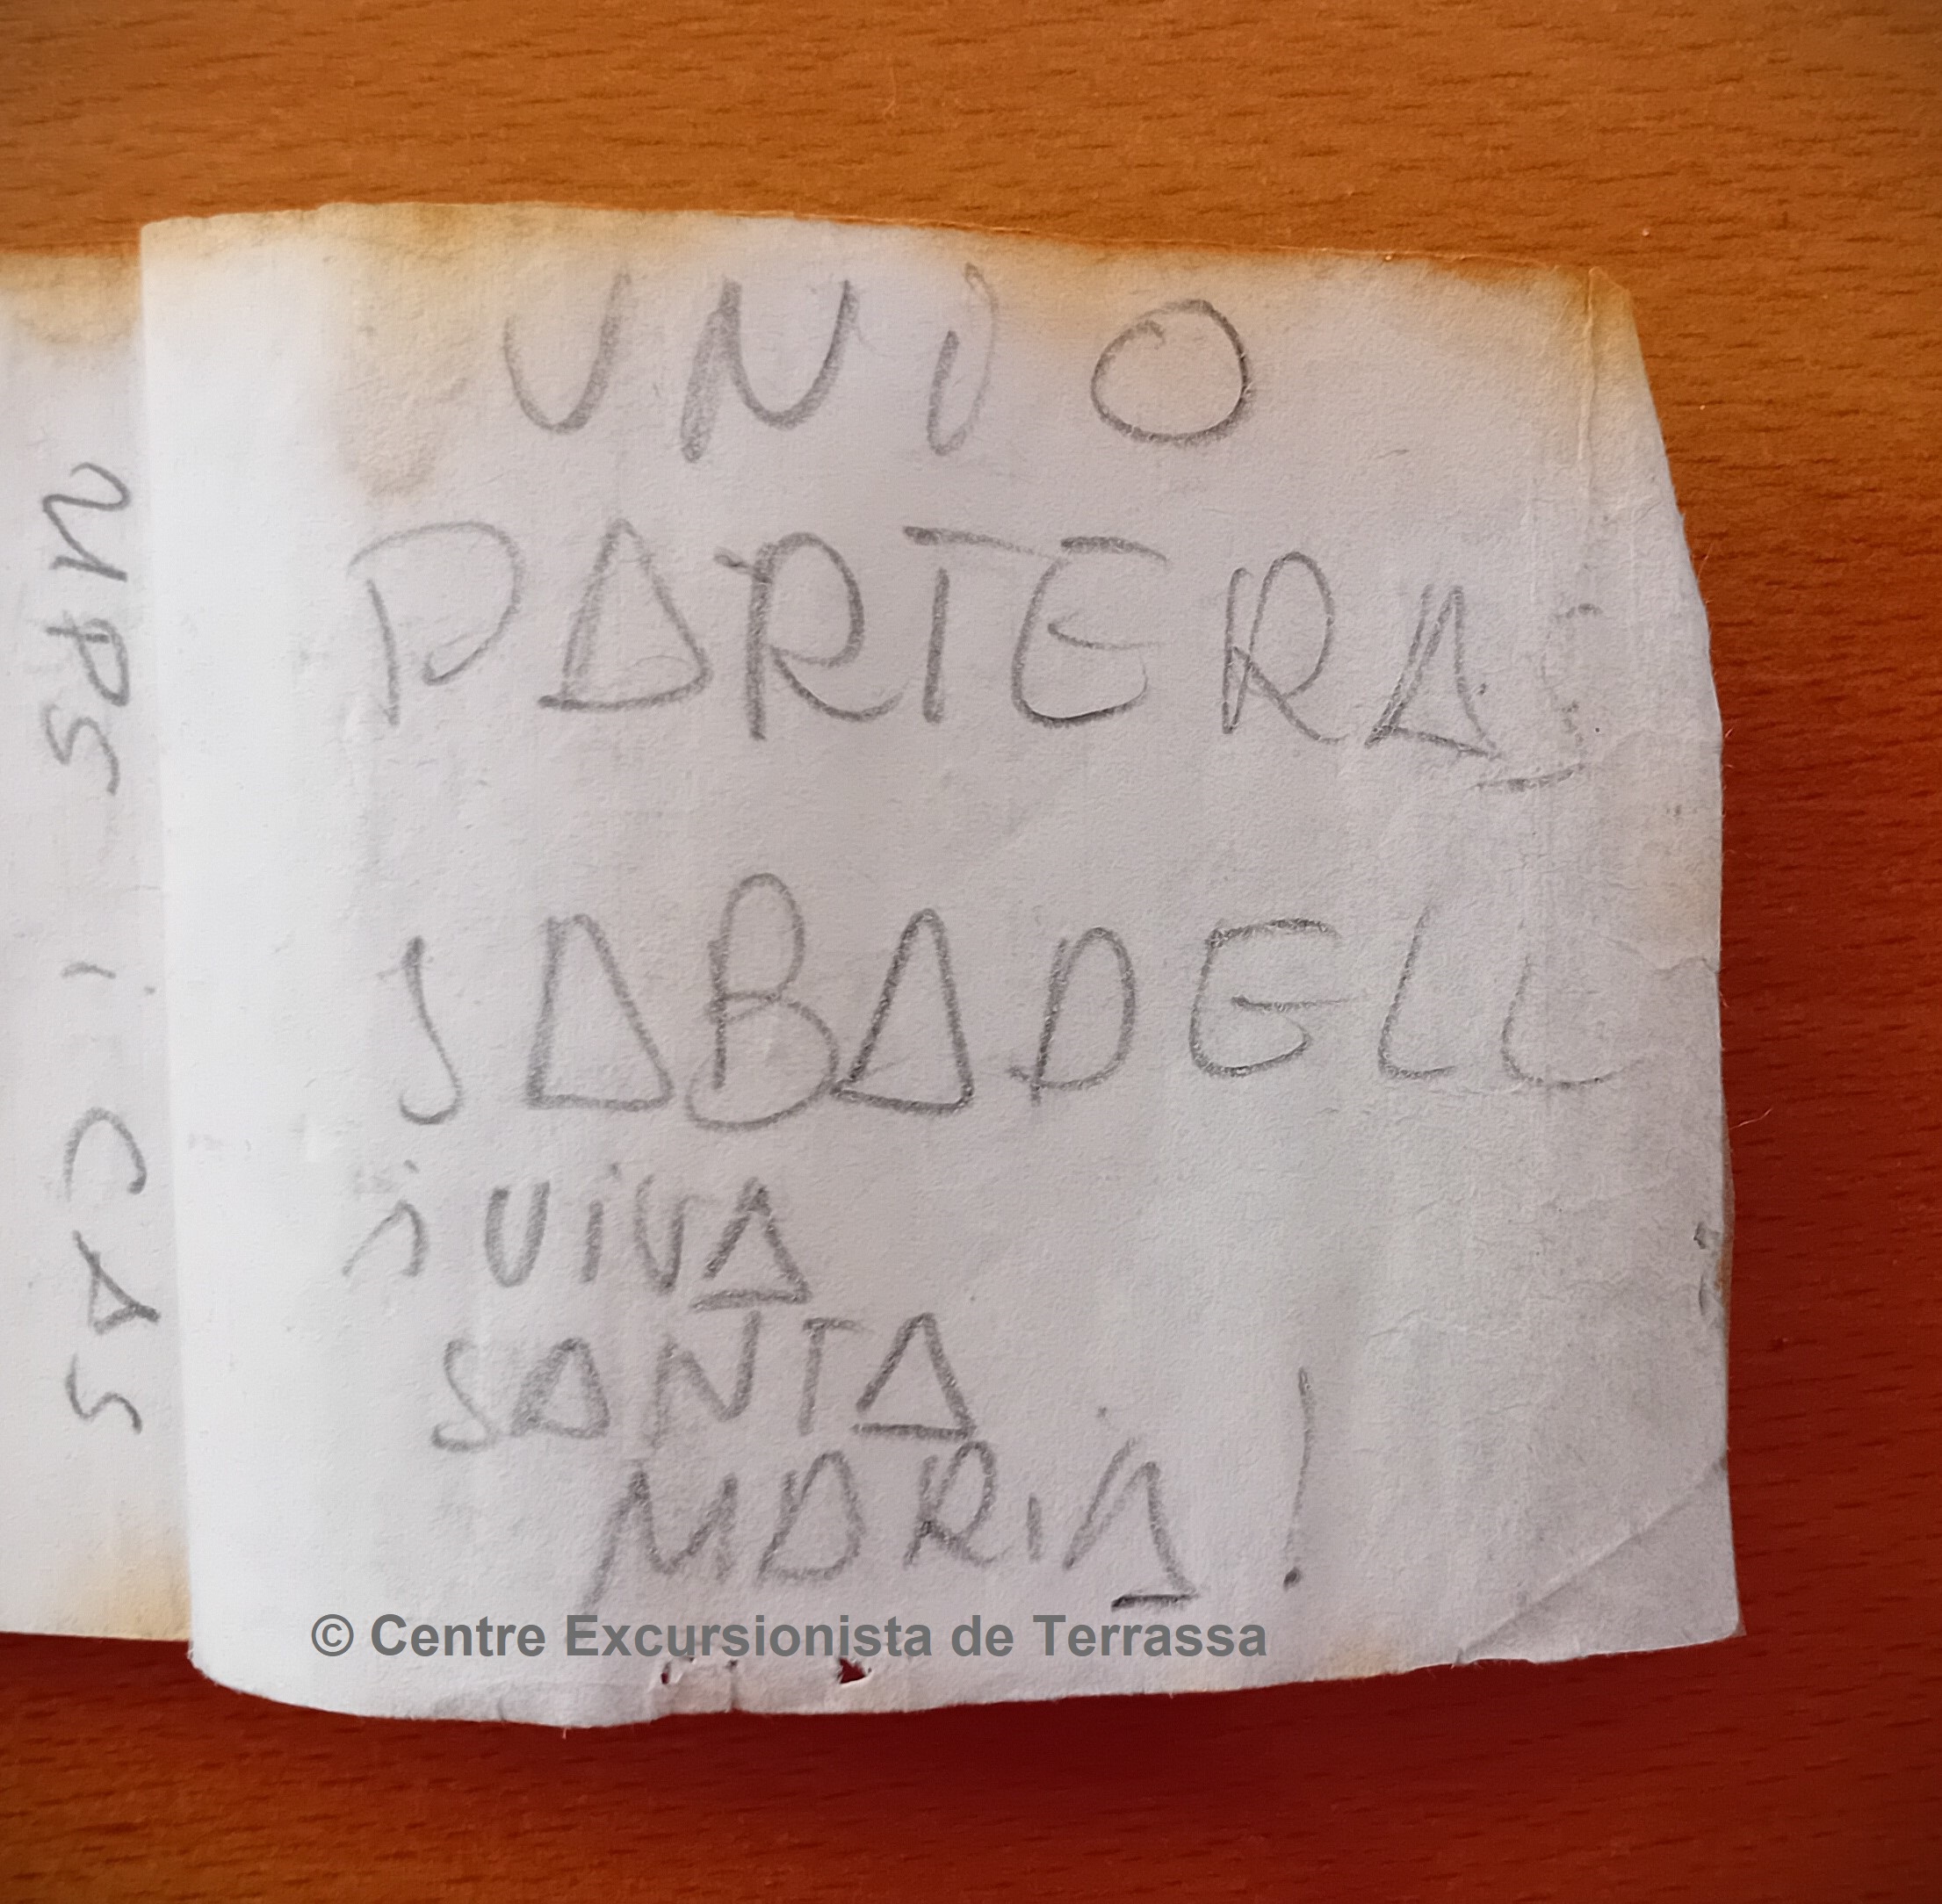 UNIO
PARTERA
SABADELL
¡VIVA
SANTA
MARIA!
MAS i CAS
© Centre Excursionista de Terrassa